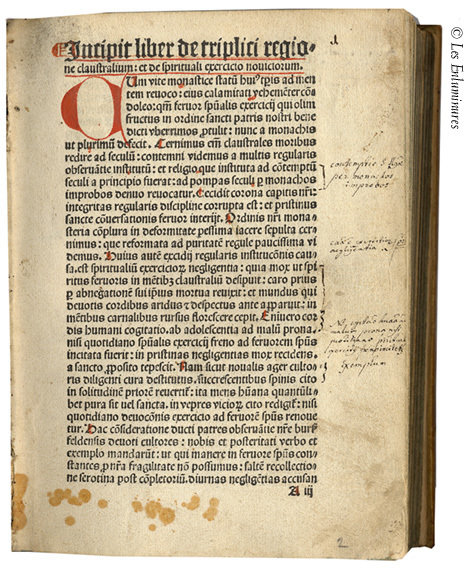 Incipit liber de triplici regio⸗
ne claustralium: et de spirituali exercicio nouiciorum.
CUm vite monastice statū hui⁹ tꝑis ad men
tem reuoco: eius calamitati vehemēter cō
doleo: qm̄ feruor spūalis exercicij qui olim
fructus in ordine sancti patris nostri bene
dicti vberrimos ꝓtulit: nunc a monachis
vt plurimū defecit. Cernimus em̄ claustrales moribus
redire ad seculū: contemni videmus a multis regularis
obseruātie institutū: et religio que instituta ad cōtemptū
seculi a principio fuerat: ad pompas seculi ꝑ monachos
improbos denuo reuocatur. Cecidit corona capitis nr̄i:
integritas regularis discipline corrupta est: et pristinus
sancte cōuersationis feruor interijt. Ordinis nr̄i mona⸗
steria cōplura in deformitate pessima iacere sepulta cer
nimus: que reformata ad puritatē regule paucissima vi
demus. Huius autē excidij regularis institucōnis cau⸗
sa. est spiritualiū exercicioꝝ negligentia: quia mox vt spi
ritus feruoris in mētibꝰ claustraliū desijt: caro prius
ꝑ abnegationē sui ipius mortua reuixit: et mundus qui
deuotis cordibus aridus et despectus ante apparuit: in
mētibus carnalibus rursus florescere cepit. Enimuero cor
dis humani cogitatio. ab adolescentia ad malū prona.
nisi quotidiano spūalis exercicij freno ad feruorem spūs
incitata fuerit: in pristinas negligentias mox recidens.
a sancto ꝓposito tepescit. Nam sicut noualis ager cultoris
diligenti cura destitutus. succrescentibus spinis cito
in solitudinē priorē reuertit̄: ita mens hūana quantūli
bet pura sit vel sancta. in vepres vicioꝝ cito redigit̄: nisi
quotidiano deuocōnis exercicio ad feruorē spūs renoue
tur. Hac cōsideratione ducti patres obseruātie nr̄e bursz
feldensis deuoti cultores: nobis et posteritati verbo et
exemplo mandarūt: vt qui manere in feruore spūs con⸗
stantes ꝓ nr̄a fragilitate nō possumus: saltē recollectio⸗
ne serotina post cōpletoriū. diurnas negligētias accusan
A iij
contemptus
per monachos
improbos
negligentia
exemplum
2
© Les Enluminures